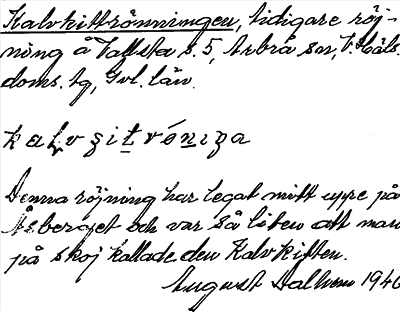 Kalvkittrönningen, tidigare röj-
ning å Vallsta s. 5, Arbrå sn, V. Häls.
doms. tg, Gvl. län.
Denna röjning har legat mitt uppe på
Åsberget och var så liten att man
på skoj kallade den Kalvkitten.
August Dalhem 1940